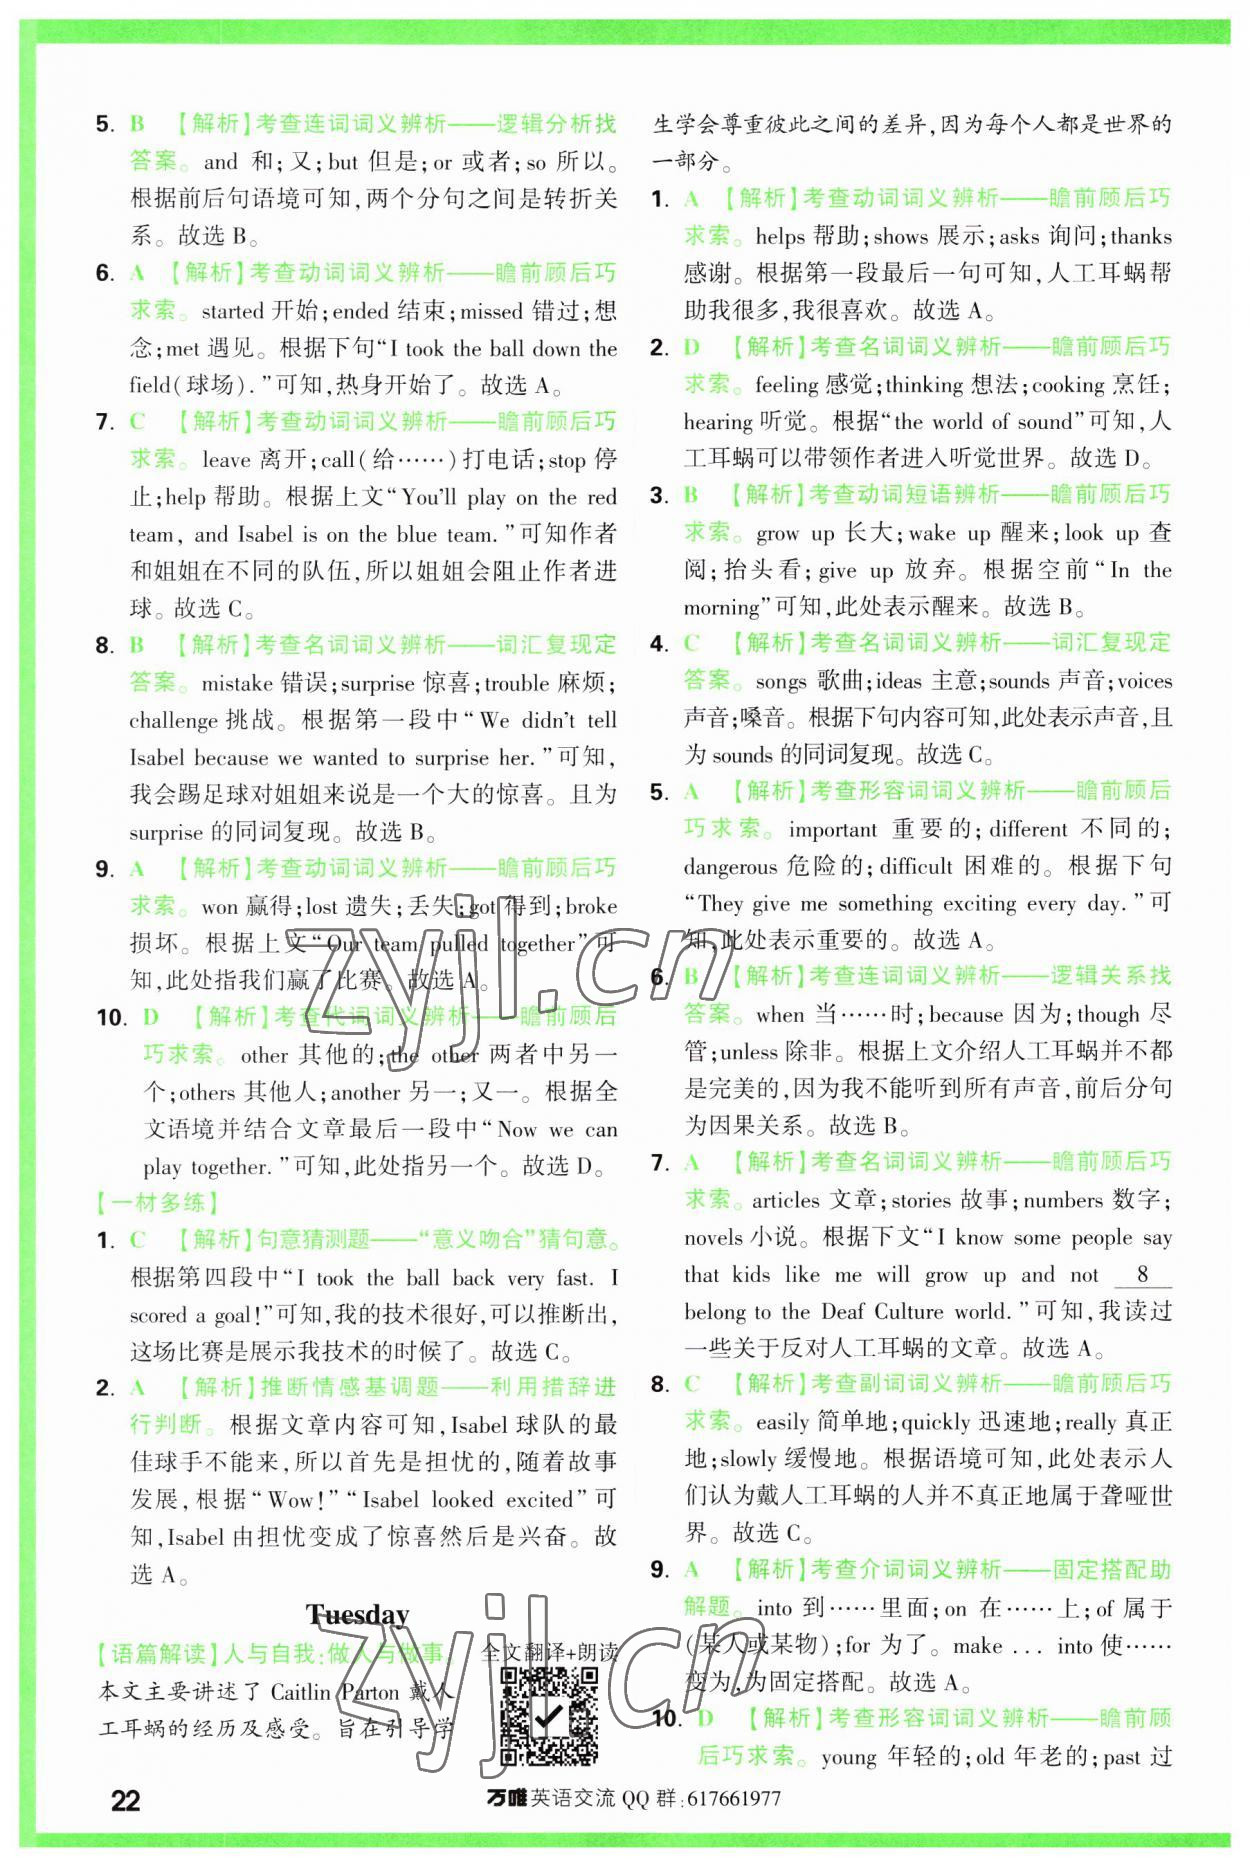 5. B 【解析】考查连词词义辨析——逻辑分析找
答案。and 和;又;but 但是;or 或者;so 所以。
根据前后句语境可知,两个分句之间是转折关
系。故选 B。
6. A 【解析】考查动词词义辨析——瞻前顾后巧
求索。started 开始;ended 结束;missed 错过;想
念;met 遇见。根据下句“I took the ball down the
field(球场).”可知,热身开始了。故选 A。
7. C 【解析】考查动词词义辨析——瞻前顾后巧
求索。leave 离开;call(给……)打电话;stop 停
止;help 帮助。根据上文“You'll play on the red
team, and Isabel is on the blue team.”可知作者
和姐姐在不同的队伍,所以姐姐会阻止作者进
球。故选 C。
8. B 【解析】考查名词词义辨析——词汇复现定
答案。mistake 错误;surprise 惊喜;trouble 麻烦;
challenge 挑战。根据第一段中“We didn't tell
Isabel because we wanted to surprise her.”可知,
我会踢足球对姐姐来说是一个大的惊喜。且为
surprise 的同词复现。故选 B。
9. A 【解析】考查动词词义辨析——瞻前顾后巧
求索。won 赢得;lost 遗失;丢失;got 得到;broke
损坏。根据上文“Our team pulled together”可
知,此处指我们赢了比赛。故选 A。
10. D 【解析】考查代词词义辨析——瞻前顾后
巧求索。other 其他的;the other 两者中另一
个;others 其他人;another 另一;又一。根据全
文语境并结合文章最后一段中“Now we can
play together.”可知,此处指另一个。故选 D。
【一材多练】
1. C 【解析】句意猜测题——“意义吻合”猜句意。
根据第四段中“I took the ball back very fast. I
scored a goal!”可知,我的技术很好,可以推断出,
这场比赛是展示我技术的时候了。故选 C。
2. A 【解析】推断情感基调题——利用措辞进
行判断。根据文章内容可知,Isabel 球队的最
佳球手不能来,所以首先是担忧的,随着故事
发展,根据“Wow!”“Isabel looked excited”可
知,Isabel 由担忧变成了惊喜然后是兴奋。故
选 A。
Tuesday
【语篇解读】人与自我:做人与做事。
全文翻译+朗读
本文主要讲述了 Caitlin Parton 戴人
工耳蜗的经历及感受。旨在引导学
生学会尊重彼此之间的差异,因为每个人都是世界的
一部分。
1. A 【解析】考查动词词义辨析——瞻前顾后巧
求索。helps 帮助;shows 展示;asks 询问;thanks
感谢。根据第一段最后一句可知,人工耳蜗帮
助我很多,我很喜欢。故选 A。
2. D 【解析】考查名词词义辨析——瞻前顾后巧
求索。feeling 感觉;thinking 想法;cooking 烹饪;
hearing 听觉。根据“the world of sound”可知,人
工耳蜗可以带领作者进入听觉世界。故选 D。
3. B 【解析】考查动词短语辨析——瞻前顾后巧
求索。grow up 长大;wake up 醒来;look up 查
阅;抬头看;give up 放弃。根据空前“In the
morning”可知,此处表示醒来。故选 B。
4. C 【解析】考查名词词义辨析——词汇复现定
答案。songs 歌曲;ideas 主意;sounds 声音;voices
声音;嗓音。根据下句内容可知,此处表示声音,且
为 sounds 的同词复现。故选 C。
5. A 【解析】考查形容词词义辨析——瞻前顾后
巧求索。important 重要的;different 不同的;
dangerous 危险的;difficult 困难的。根据下句
“They give me something exciting every day.”可
知,此处表示重要的。故选 A。
6. B 【解析】考查连词词义辨析——逻辑关系找
答案。when 当……时;because 因为;though 尽
管;unless 除非。根据上文介绍人工耳蜗并不都
是完美的,因为我不能听到所有声音,前后分句
为因果关系。故选 B。
7. A 【解析】考查名词词义辨析——瞻前顾后巧
求索。articles 文章;stories 故事;numbers 数字;
novels 小说。根据下文“I know some people say
that kids like me will grow up and not 8
belong to the Deaf Culture world.”可知,我读过
一些关于反对人工耳蜗的文章。故选 A。
8. C 【解析】考查副词词义辨析——瞻前顾后巧
求索。easily 简单地;quickly 迅速地;really 真正
地;slowly 缓慢地。根据语境可知,此处表示人
们认为戴人工耳蜗的人并不真正地属于聋哑世
界。故选 C。
9. A 【解析】考查介词词义辨析——固定搭配助
解题。into 到……里面;on 在……上;of 属于
(某人或某物);for 为了。make ... into 使……
变为,为固定搭配。故选 A。
10. D 【解析】考查形容词词义辨析——瞻前顾
后巧求索。young 年轻的;old 年老的;past 过
22
万唯英语交流 QQ 群:617661977
zyjl.cn
zyjl.cn